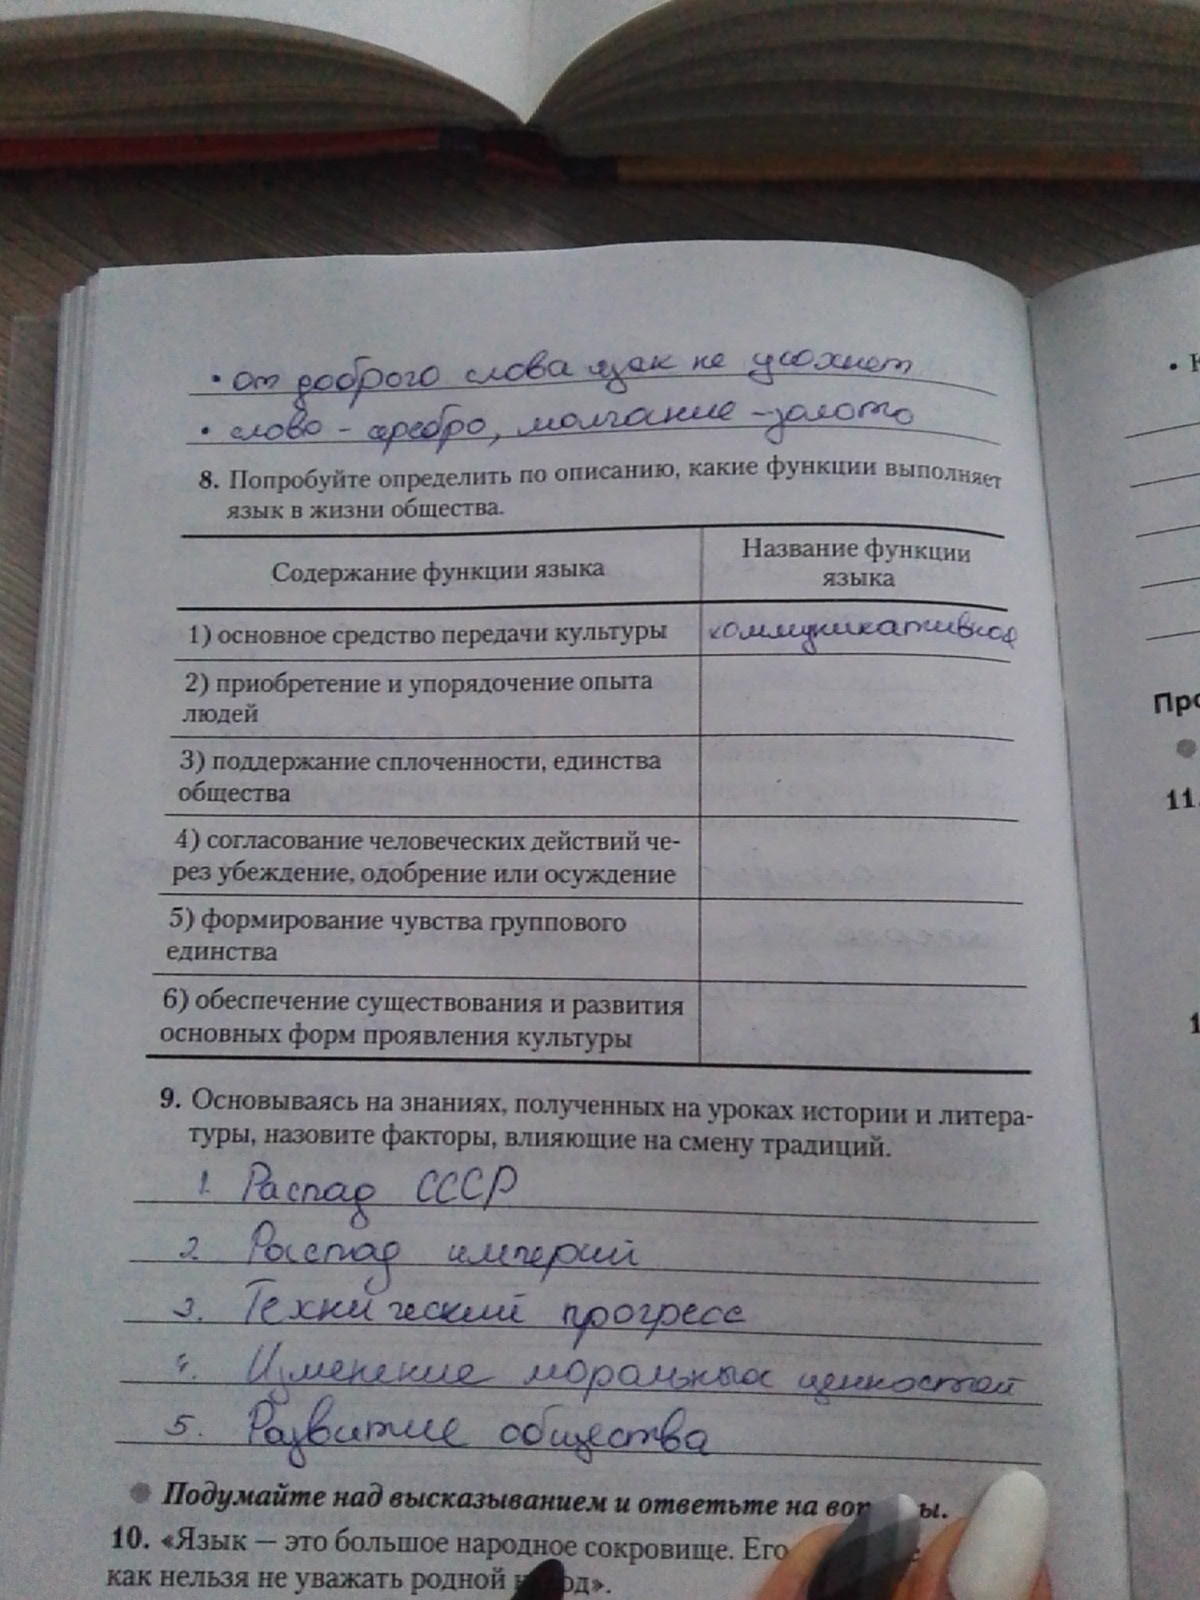 • от доброго слова язык не усохнет
• слово - серебро, молчание - золото
8. Попробуйте определить по описанию, какие функции выполняет
язык в жизни общества.
Содержание функции языка
Название функции
языка
1) основное средство передачи культуры
коммуникативная
2) приобретение и упорядочение опыта
людей
3) поддержание сплоченности, единства
общества
4) согласование человеческих действий че-
рез убеждение, одобрение или осуждение
5) формирование чувства группового
единства
6) обеспечение существования и развития
основных форм проявления культуры
9. Основываясь на знаниях, полученных на уроках истории и литера-
туры, назовите факторы, влияющие на смену традиций.
1. Распад СССР
2. Распад империй
3. Технический прогресс
4. Изменение моральных ценностей
5. Развитие общества
Подумайте над высказыванием и ответьте на
10. «Язык — это большое народное сокровище. Его
как нельзя не уважать родной
• К
Про
11.
1